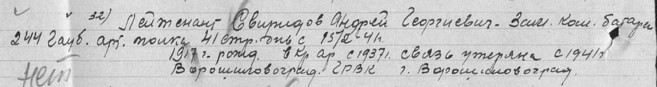 32) Лейтенант Свиридов Андрей Георгиевич - Зам. ком. батареи
244 гауб. арт. полка 41 стр. див. с 15/II-41г.
1917 г. рожд. в кр. ар. с 1937г. связь утеряна с 1941г.
Ворошиловоград. ГРВК г. Ворошиловоград.
нет